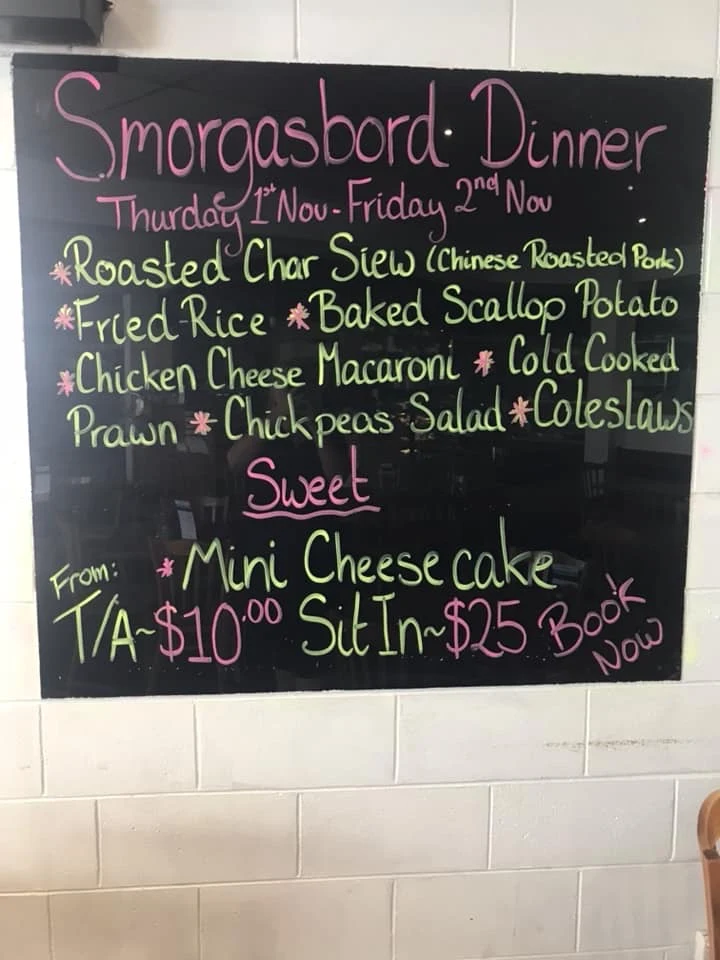 Smorgasbord Dinner
Thurday 1st Nov - Friday 2nd Nov
*Roasted Char Siew (Chinese Roasted Pork)
*Fried Rice *Baked Scallop Potato
*Chicken Cheese Macaroni * Cold Cooked
Prawn * Chickpeas Salad *Coleslaws
Sweet
*Mini Cheese cake
From:
T/A~$10.00 Sit In~$25 Book
Now